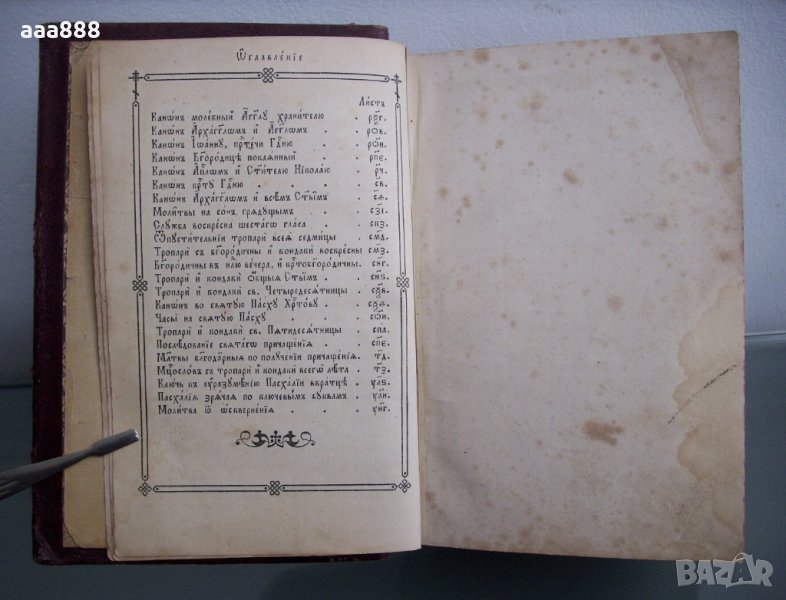 aaa888
Ѡглавле́нїе
Листъ
Канѡ́нъ моле́бный А҆́гг҃лу храни́телю . рѯ҃г.
Канѡ́нъ А҆рха́гг҃лѡмъ и҆ А҆́гг҃лѡмъ . ро҃в.
Канѡ́нъ І҆ѡа́нну, прⷣте́чи Гдⷭ҇ню . ро҃и.
Канѡ́нъ Бг҃оро́дицѣ покаѧ́нный . рп҃е.
Канѡ́нъ А҆пⷭ҇лѡмъ и҆ Ст҃и́телю Нїкола́ю . рч҃.
Канѡ́нъ крⷭ҇ту̀ Гдⷭ҇ню . . . св҃.
Канѡ́нъ А҆рха́гг҃лѡмъ и҆ всѣ̑мъ Ст҃ы̑мъ
Моли̑твы на со́нъ грѧду́щымъ . . сз҃і.
Слу́жба воскре́сна шеста́гѡ гла́са . ск҃з.
Ѿпусти́тельнїи тропари̑ всеѧ̀ седми́цы . см҃д.
Тропари̑ съ бг҃оро́дичны и҆ кондаки̑ воскре́сны см҃з.
Бг҃оро́дичны въ нⷣлю ве́чера, и҆ крⷭ҇тобг҃оро́дичны.
Тропари̑ и҆ кондаки̑ ѻ҆́бщыѧ Ст҃ы̑мъ . .
Тропари̑ и҆ кондаки̑ св. Четыредесѧ́тницы . сѯ҃в.
Канѡ́нъ во свѧту́ю Па́сху Хрⷭ҇то́ву .
Часы̀ на свѧту́ю Па́сху . . со҃и.
Тропари̑ и҆ кондаки̑ св. Пѧтидесѧ́тницы . сп҃а.
Послѣ́дованїе свѧта́гѡ причаще́нїѧ . сп҃е.
Мл҃твы бл҃года̑рныѧ по получе́нїи причаще́нїѧ. т҃д.
Мцⷭ҇осло́въ съ тропари̑ и҆ кондаки̑ всегѡ̀ лѣ́та . т҃з.
Клю́чь къ ᲂу҆разумѣ́нїю Пасха́лїи вкра́тцѣ .
Пасха́лїа зрѧ́чаѧ по ключевы̑мъ бу́квамъ . ул҃и.
Моли́тва ѿ ѡ҆скверне́нїѧ . . . ун҃г.
BAZAR